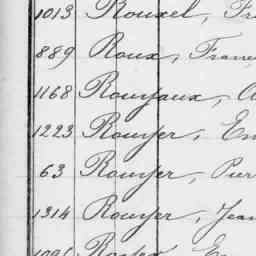 1013 Rouxel, Fr
889 Roux, Franç
1168 Rouyaux, A
1223 Rouyer, Em
63 Rouyer, Pier
1314 Rouyer, Jean
1096